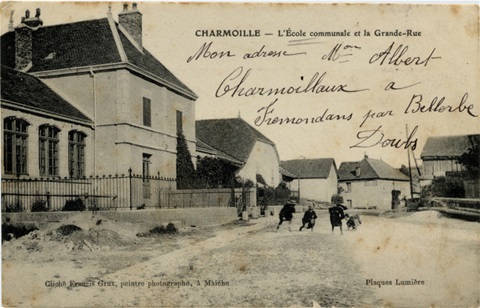 CHARMOILLE — L'École communale et la Grande-Rue
Mon adresse Mme Albert
Charmoillaux à
Fremondans par Belborbe
Doubs
Cliché Francis Grux, peintre photographe, à Maîche
Plaques Lumière